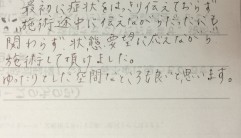 最初に症状をはっきり伝えておらず
施術途中に伝えながらだったにも
関わらず、状態、要望に応えながら
施術して頂けました。
ゆったりとした空間なところも良いと思います。